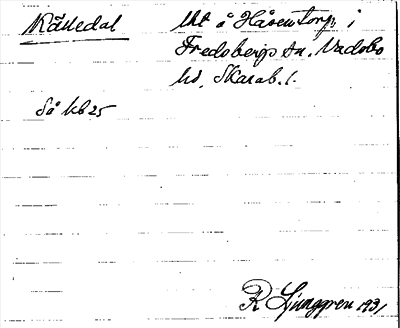 Källedal
Utt å Håven Torp i
Fredsbergs sn. Vadsbo
hd. Skarab. l.
Så kb 25
R Ljunggren 1931